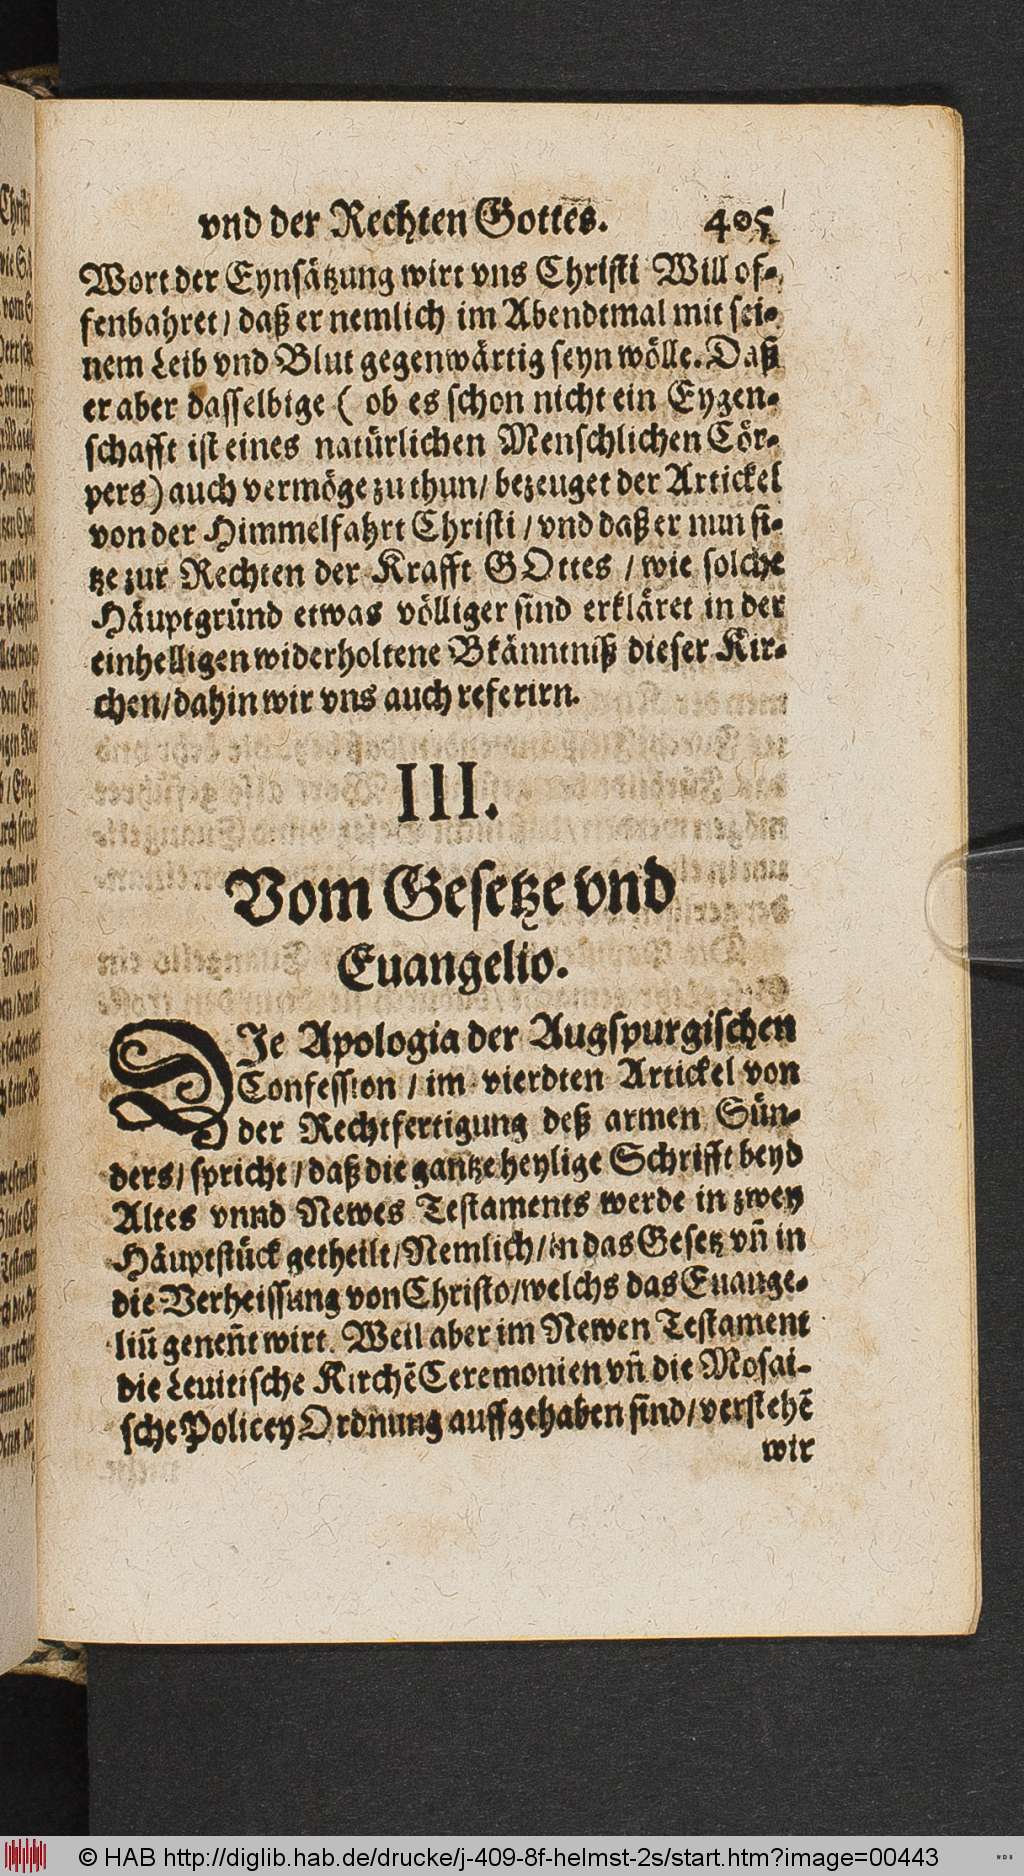 vnd der Rechten Gottes. 405
Wort der Eynsätzung wirt vns Christi Will of-
fenbahret / daß er nemlich im Abendtmal mit sei-
nem Leib vnd Blut gegenwärtig seyn wölle. Daß
er aber dasselbige ( ob es schon nicht ein Eygen-
schafft ist eines natürlichen Menschlichen Cör-
pers) auch vermöge zu thun / bezeuget der Artickel
von der Himmelfahrt Christi / vnd daß er nun si-
tze zur Rechten der Krafft GOttes / wie solche
Häuptgründ etwas völliger sind erkläret in der
einhelligen widerholtene Bkänntniß dieser Kir-
chen / dahin wir vns auch referirn.
III.
Vom Gesetze vnd
Euangelio.
DIe Apologia der Augspurgischen
Confession / im vierdten Artickel von
der Rechtfertigung deß armen Sün-
ders / spricht / daß die gantze heylige Schrifft beyd
Altes vnnd Newes Testaments werde in zwey
Häuptstück getheilt / Nemlich / in das Gesetz vñ in
die Verheissung von Christo / welchs das Euange-
liū geneñt wirt. Weil aber im Newen Testament
die Leuitische Kirchē Ceremonien vñ die Mosai-
sche Policey Ordnung auffgehaben sind / verstehē
wir
© HAB http://diglib.hab.de/drucke/j-409-8f-helmst-2s/start.htm?image=00443